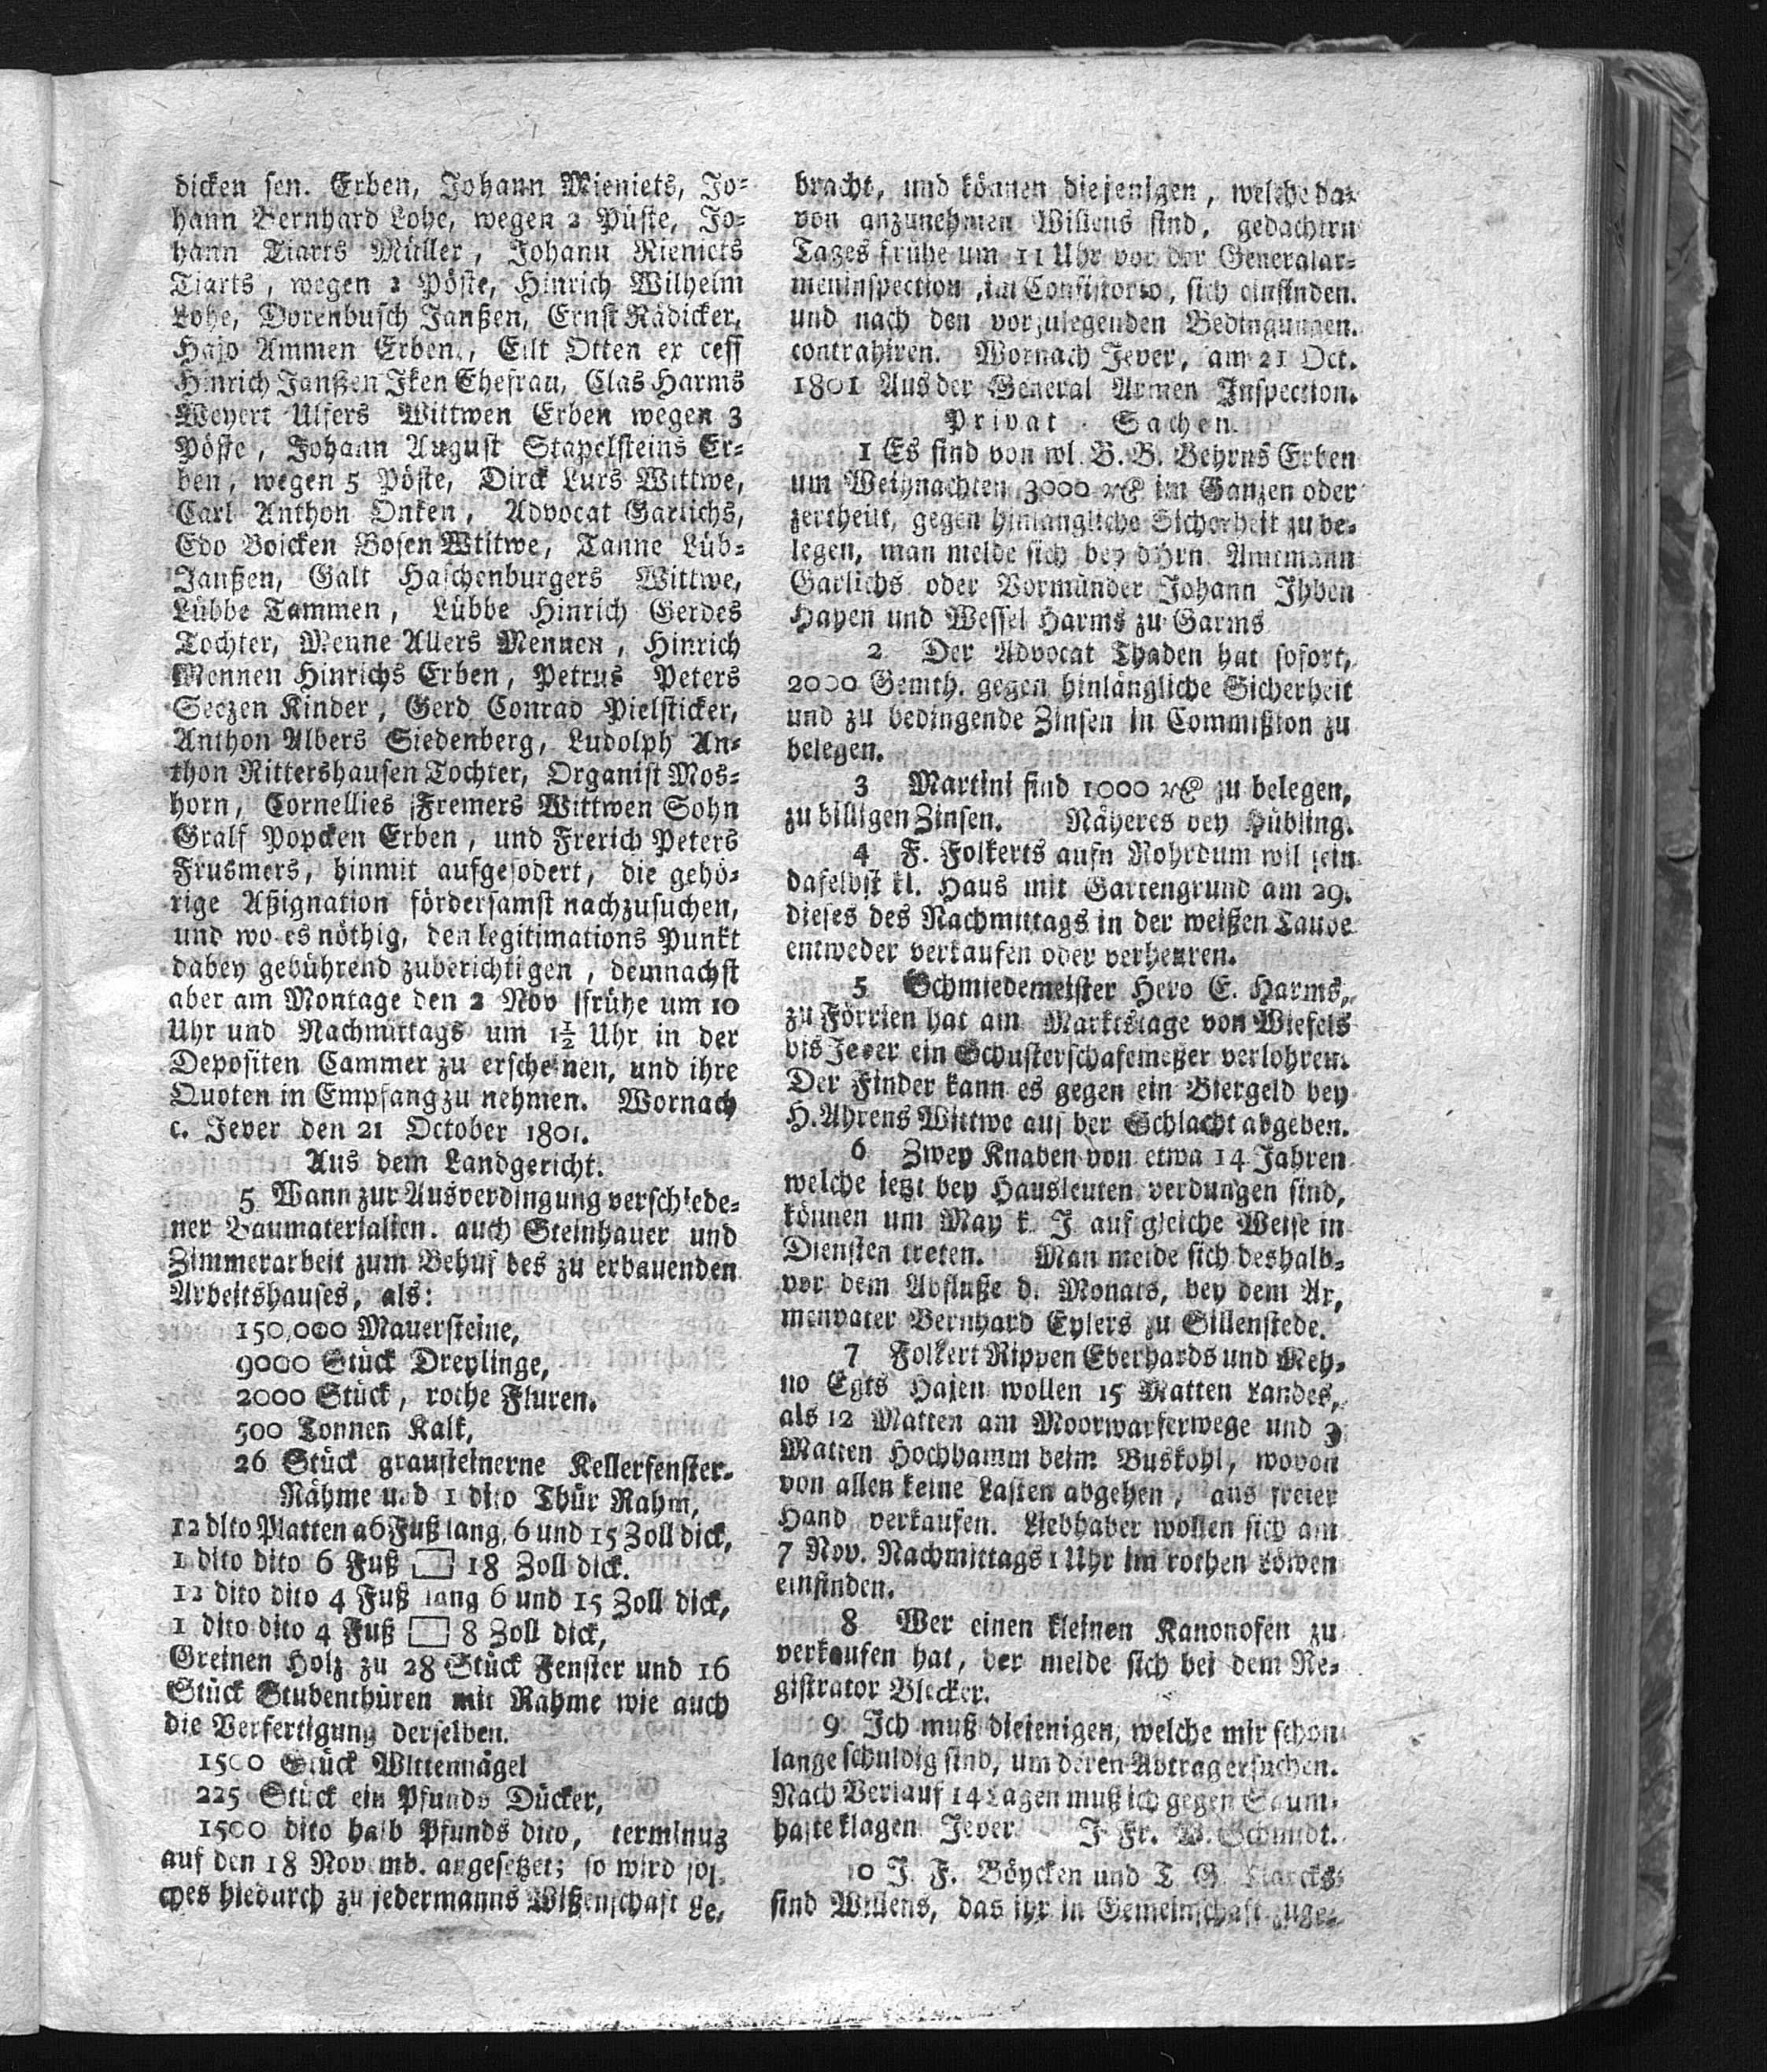 dicken sen. Erben, Johann Mieniets, Jo-
hann Bernhard Lohe, wegen 2 Püste, Jo-
hann Tiarts Müller, Johann Rieniets
Tiarts, wegen 2 Pöste, Hinrich Wilhelm
Lohe, Dorenbusch Janßen, Ernst Rädicker,
Hajo Ammen Erben, Eilt Otten ex cess
Hinrich Janßen Iken Ehefrau, Clas Harms
Weyert Ulfers Wittwen Erben wegen 3
Pöste, Johann August Stapelsteins Er-
ben, wegen 5 Pöste, Dirck Lurs Wittwe,
Carl Anthon Onken, Advocat Garlichs,
Edo Boicken Bosen Wtitwe, Tanne Lüb-
Janßen, Galt Haschenburgers Wittwe,
Lübbe Tammen, Lübbe Hinrich Gerdes
Tochter, Menne Allers Mennen, Hinrich
Mennen Hinrichs Erben, Petrus Peters
Seezen Kinder, Gerd Conrad Pielsticker,
Anthon Albers Siedenberg, Ludolph An-
thon Rittershausen Tochter, Organist Mos-
horn, Cornellies Fremers Wittwen Sohn
Gralf Popcken Erben, und Frerich Peters
Frusmers, hinmit aufgefodert, die gehö-
rige Aßignation fördersamst nachzusuchen,
und wo es nöthig, den legitimations Punkt
dabey gebührend zuberichtigen, demnachst
aber am Montage den 2 Nov frühe um 10
Uhr und Nachmittags um 1½ Uhr in der
Depositen Cammer zu erscheinen, und ihre
Quoten in Empfang zu nehmen. Wornach
c. Jever den 21 October 1801.
Aus dem Landgericht.
5 Wann zur Ausverdingung verschiede-
ner Baumaterialien. auch Steinhauer und
Zimmerarbeit zum Behuf des zu erbauenden
Arbeitshauses, als:
150,000 Mauersteine,
9000 Stück Dreylinge,
2000 Stück, rothe Fluren.
500 Tonnen Kalk,
26 Stück grausteinerne Kellerfenster-
Rähme und 1 dito Thür Rahm,
12 dito Platten a 6 Fuß lang, 6 und 15 Zoll dick,
1 dito dito 6 Fuß □ 18 Zoll dick.
12 dito dito 4 Fuß lang 6 und 15 Zoll dick,
1 dito dito 4 Fuß □ 8 Zoll dick,
Greinen Holz zu 28 Stück Fenster und 16
Stück Stubenthüren mit Rahme wie auch
die Verfertigung derselben.
1500 Stück Wittennägel
225 Stück ein Pfunds Dücker,
1500 dito halb Pfunds dito, terminus
auf den 18 Novemb. angesetzet; so wird sol-
ches hiedurch zu jedermanns Wißenschaft ge-
bracht, und können diejenigen, welche da-
von anzunehmen Willens sind, gedachten
Tages frühe um 11 Uhr vor der Generalar-
meninspection, im Consistorio, sich einfinden.
und nach den vorzulegenden Bedingungen.
contrahiren. Wornach Jever, am 21 Oct.
1801 Aus der General Armen Inspection.
Privat Sachen.
1 Es sind von wl. B. B. Behrns Erben
um Weihnachten 3000 rℓ im Ganzen oder
zertheilt, gegen hinlangliche Sicherheit zu be-
legen, man melde sich bey dHrn. Amtmann
Garlichs oder Vormünder Johann Ihben
Hayen und Wessel Harms zu Garms
2 Der Advocat Thaden hat sofort,
2000 Gemth. gegen hinlängliche Sicherheit
und zu bedingende Zinsen in Commißion zu
belegen.
3 Martini sind 1000 rℓ zu belegen,
zu billigen Zinsen. Näheres bey Hübling.
4 F. Folkerts aufn Rohrdum wil sein
daselbst kl. Haus mit Gartengrund am 29.
dieses des Nachmittags in der weißen Taube
entweder verkaufen oder verheuren.
5 Schmiedemeister Hero E. Harms,
zu Förrien hat am Marktstage von Wiefels
bis Jever ein Schusterschafemeßer verlohren.
Der Finder kann es gegen ein Biergeld bey
H. Ahrens Wittwe auf der Schlacht abgeben.
6 Zwey Knaben von etwa 14 Jahren
welche jetzt bey Hausleuten verdungen sind,
können um May k. J auf gleiche Weise in
Diensten treten. Man melde sich deshalb-
vor dem Abfluße d. Monats, bey dem Ar,
menvater Bernhard Eylers zu Sillenstede.
7 Folkert Rippen Eberhards und Meh-
no Egts Hajen wollen 15 Matten Landes,
als 12 Matten am Moorwarferwege und 3
Matten Hochhamm beim Buskohl, wovon
von allen keine Lasten abgehen, aus freier
Hand verkaufen. Liebhaber wollen sich am
7 Nov. Nachmittags 1 Uhr im rothen Löwen
einfinden.
8 Wer einen kleinen Kanonofen zu
verkaufen hat, der melde sich bei dem Re-
gistrator Blecker.
9 Ich muß diejenigen, welche mir schon
lange schuldig sind, um deren Abtrag ersuchen.
Nach Verlauf 14 Tagen muß ich gegen Saum-
hafte klagen Jever J. Fr. W. Schmidt.
10 J. F. Böycken und T. G.
sind Willens, das ihr in Gemeinschaft zuge-